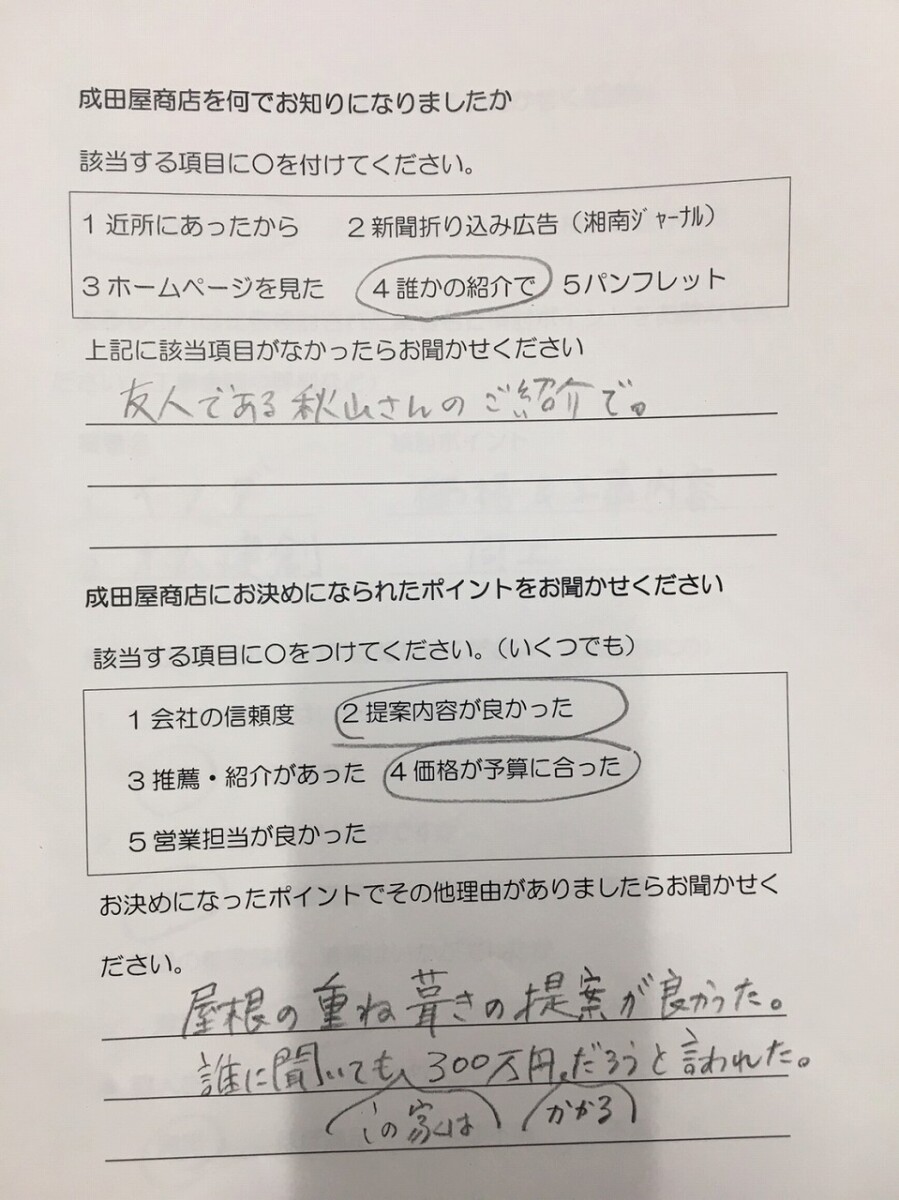 成田屋商店を何でお知りになりましたか
該当する項目に〇を付けてください。
1 近所にあったから　2 新聞折り込み広告（湘南ｼﾞｬｰﾅﾙ）
3 ホームページを見た　4 誰かの紹介で　5パンフレット
上記に該当項目がなかったらお聞かせください
友人である秋山さんのご紹介で。
成田屋商店にお決めになられたポイントをお聞かせください
該当する項目に〇をつけてください。（いくつでも）
1 会社の信頼度　2 提案内容が良かった
3 推薦・紹介があった　4 価格が予算に合った
5 営業担当が良かった
お決めになったポイントでその他理由がありましたらお聞かせく
ださい。
屋根の重ね葺きの提案が良かった。
誰に聞いても、300万円だろうと言われた。
この家は　かかる